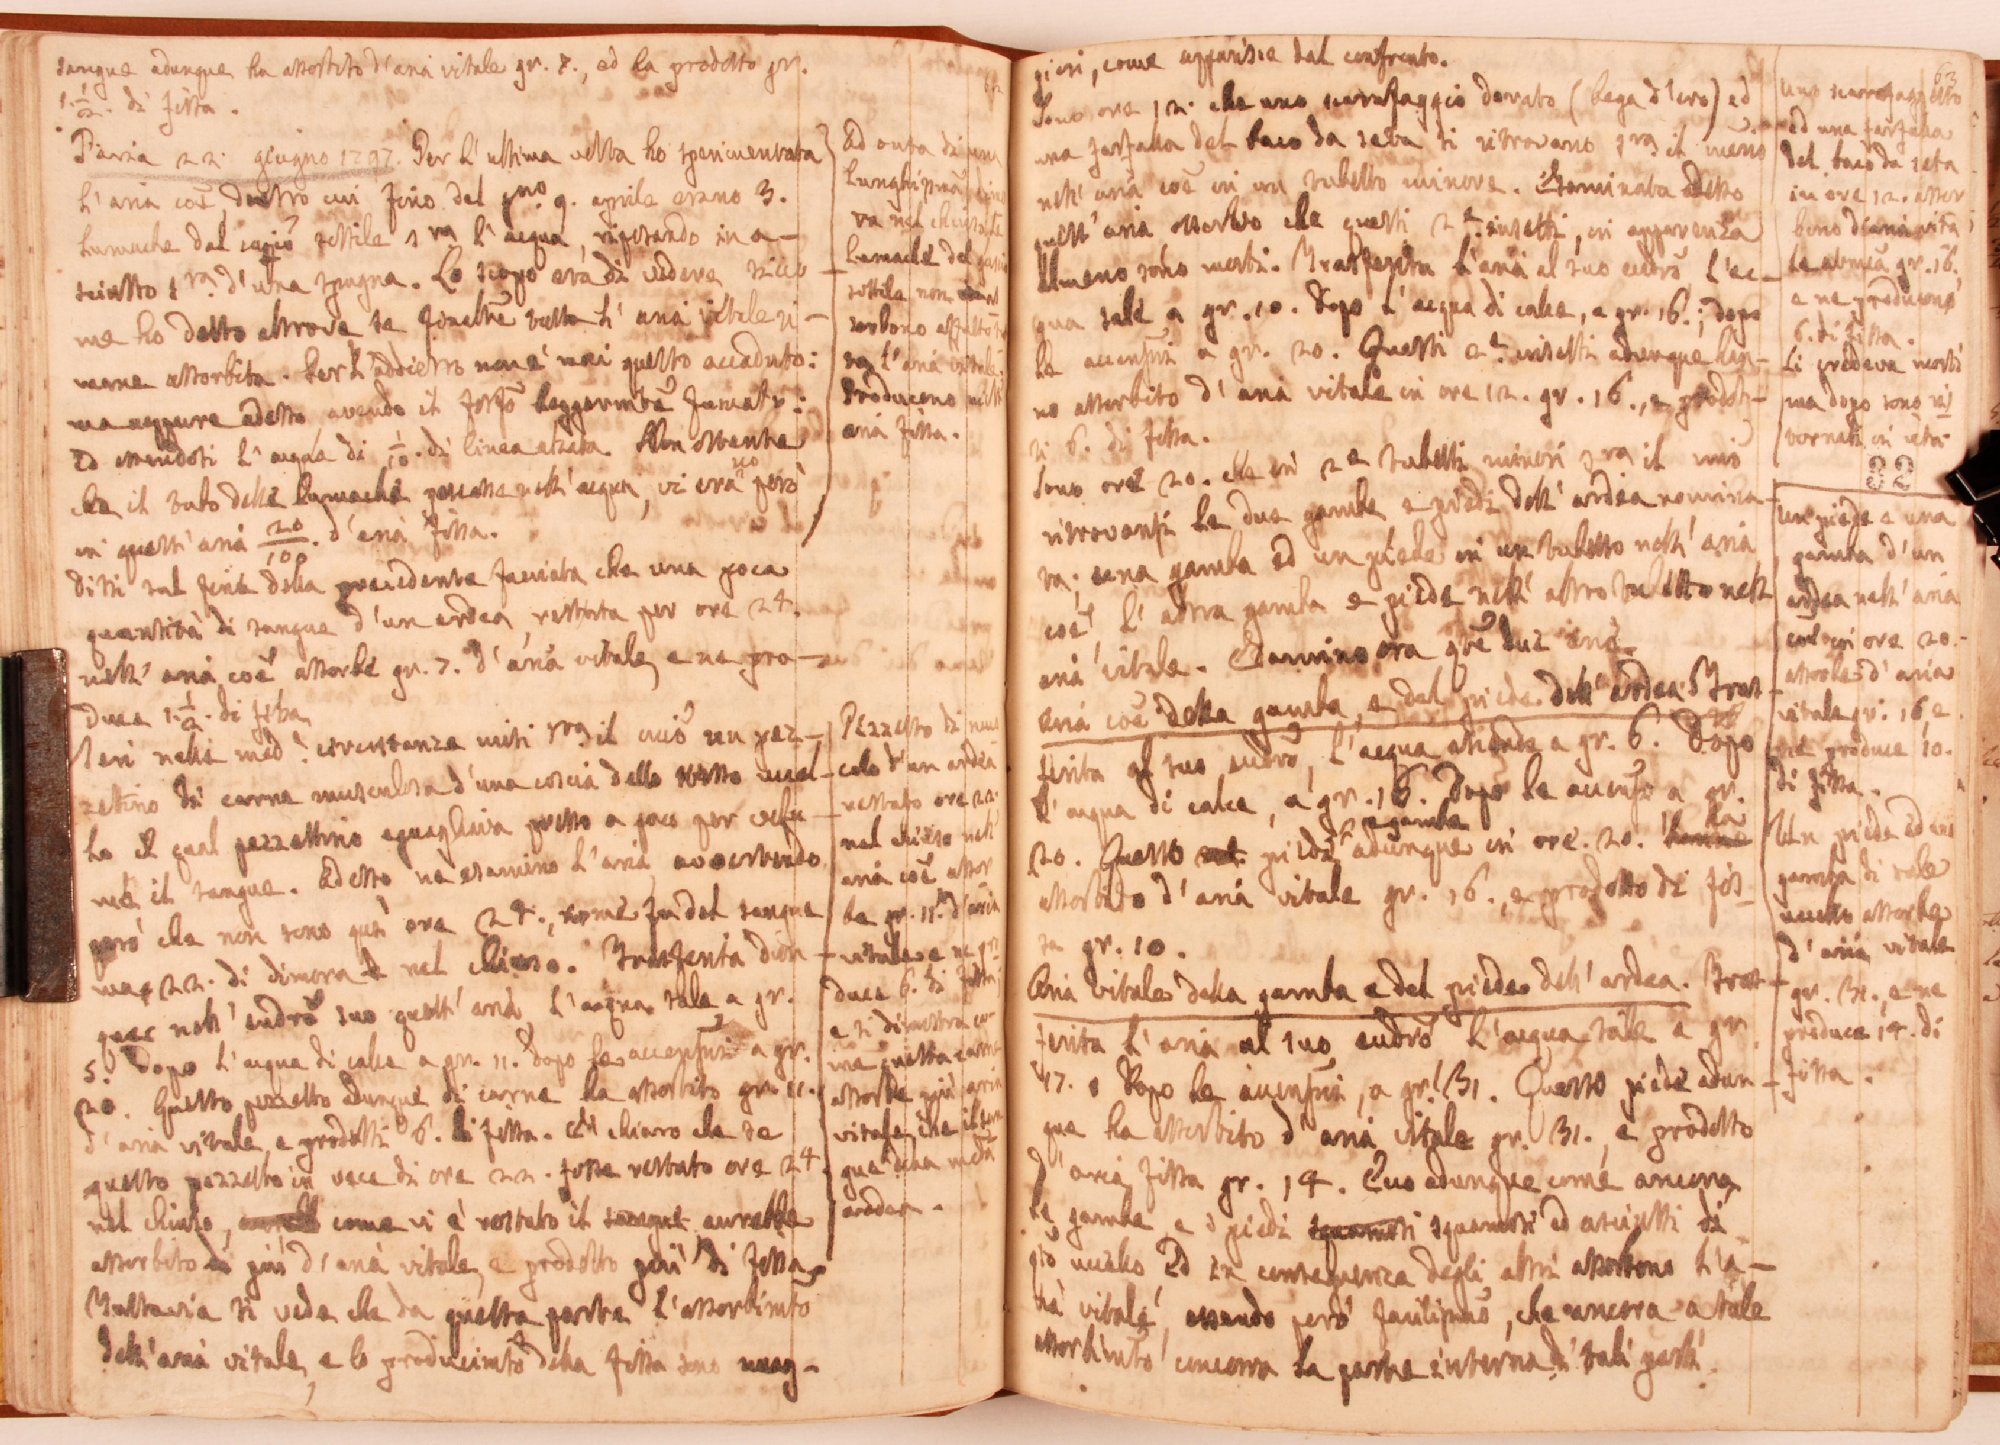 sangue adunque ha assorbito d'aria vitale gr. 7., ed ha prodotto gr.
1. 1/2. di fissa.
Pavia 22. giugno 1797. Per l'ultima volta ho sperimentata
l'aria coẽ dentro cui fino del gno. 9. aprile erano 3.
lumache dal guscio sottile sra l'acqua, riposando in a-
sciutto sra. d'una spugna. Lo scopo era di vedere sicco-
me ho detto altrove se finalm̃e tutta l'aria vitale ri-
mane assorbita. Per l'addietro non è mai questo accaduto:
ma neppure adesso avendo il fosfo leggermẽte fumato:
ed essendosi l'acqua di 1/10. di linea alzata. Non ostante
che il tubo delle lumache pescasse nell'acqua, vi era no però
in quest'aria 20/100. d'aria fissa.
Dissi sul fine della precedente facciata che una poca
quantità di sangue d'un ardea, restata per ore 24.
nell'aria coẽ assorbe gr. 7. d'aria vitale, e ne pro-
duce 1. 1/2. di fissa.
Ieri nelle med.e circostanze misi sra il mio un pez-
zettino di carne muscolosa d'una coscia dello stesso uccel-
lo il qual pezzettino eguagliava presso a poco per volu-
me il sangue. Adesso ne esamino l'aria avvertendo
però che non sono quì ore 24., come fu del sangue
ma 22. di dimora nel chiuso. Trasferita dun-
que nell'eudro suo quest'aria l'acqua sale a gr.
5. Dopo l'acqua di calce a gr. 11. Dopo le accensi a gr.
20. Questo pezzetto adunque di carne ha assorbito gr. 11.
d'aria vitale, e prodotti 6. di fissa. È chiaro che se
questo pezzetto in vece di ore 22. fosse restato ore 24.
nel chiuso, come vi è restato il sangue avrebbe
assorbito di più d'aria vitale, e prodotto più di fissa.
Tuttavia si vede che da questa parte l'assorbimto
dell'aria vitale, e lo producimto della fissa sono mag-
Ad onta di una
lunghissima dimo
ra nel chiuso le
lumache del guscio
sottile non as
sorbono affatto tut
ta l'aria vitale.
Producono molta
aria fissa.
Pezzetto di mus
colo d'un ardea
restato ore 22.
nel chiuso nell'
aria coẽ assor
be gr. 11. d'aria
vitale e ne pro
duce 6. di fissa
e si dimostra co
me questa carne
assorbe più aria
vitale, che il san
gue della med.a
ardea.
giori, come apparisce dal confronto.
Sono ore 12. che uno scarafaggio dorato (bega d'oro) ed
una farfalla del baco da seta si ritrovano sra il mẽrio
nell'aria coẽ in un tubetto minore. Esaminata adesso
quest'aria osservo che questi 2. insetti, in apparenza
almeno sono morti. Trasferita l'aria al suo eudro, l'ac-
qua sale a gr. 10. Dopo l'acqua di calce, a gr. 16.; dopo
le accensi a gr. 20. Questi 2. insetti adunque han-
no assorbito d'aria vitale in ore 12. gr. 16., e prodot-
ti 6. di fissa.
Sono ore 20. che in 2e tubetti minori sra il mio
ritrovansi le due gambe e piedi dell'ardea nomina-
ta; una gamba ed un piede in un tubetto nell'aria
coẽ, l'altra gamba e piede nell'altro tubetto nell'
aria vitale. Esamino ora que due arie.
Aria coẽ della gamba, e del piede dell'ardea. Tras-
ferita al suo eudro, l'acqua ascende a gr. 6. Dopo
l'acqua di calce, a gr. 16. Dopo le accensi a gr.
20. Questo piede e gamba adunque in ore 20. ha
assorbito d'aria vitale gr. 16., e prodotto di fis-
sa gr. 10.
Aria vitale della gamba e del piede dell'ardea. Tras-
ferita l'aria al suo eudro l'acqua sale a gr.
17. Dopo le accensi, a gr. 31. Questo piede adun-
que ha assorbito d'aria vitale gr. 31., e prodotto
d'aria fissa gr. 14. Ecco adunque come ancora
le gambe e i piedi squamosi squamosi ed asciutti di
qto uccello ed in conseguenza degli altri assorbono l'a-
ria vitale, essendo però facilissimo, che ancora a tale
assorbimto concorra la parte interna di tali parti.
63
Uno scarafaggio
ed una farfalla
del baco da seta
in ore 12. assor
bono d'aria vita
le almeno gr. 16.
e ne producono
6. di fissa.
Li credeva morti
ma dopo sono ri
tornati in vita.
32
Un piede e una
gamba d'un
ardea nell'aria
coẽ in ore 20.
assorbe d'aria
vitale gr. 16, e
ne produce 10.
di fissa.
Un piede ed una
gamba di tale
uccello assorbe
d'aria vitale
gr. 31., e ne
produce 14. di
fissa.